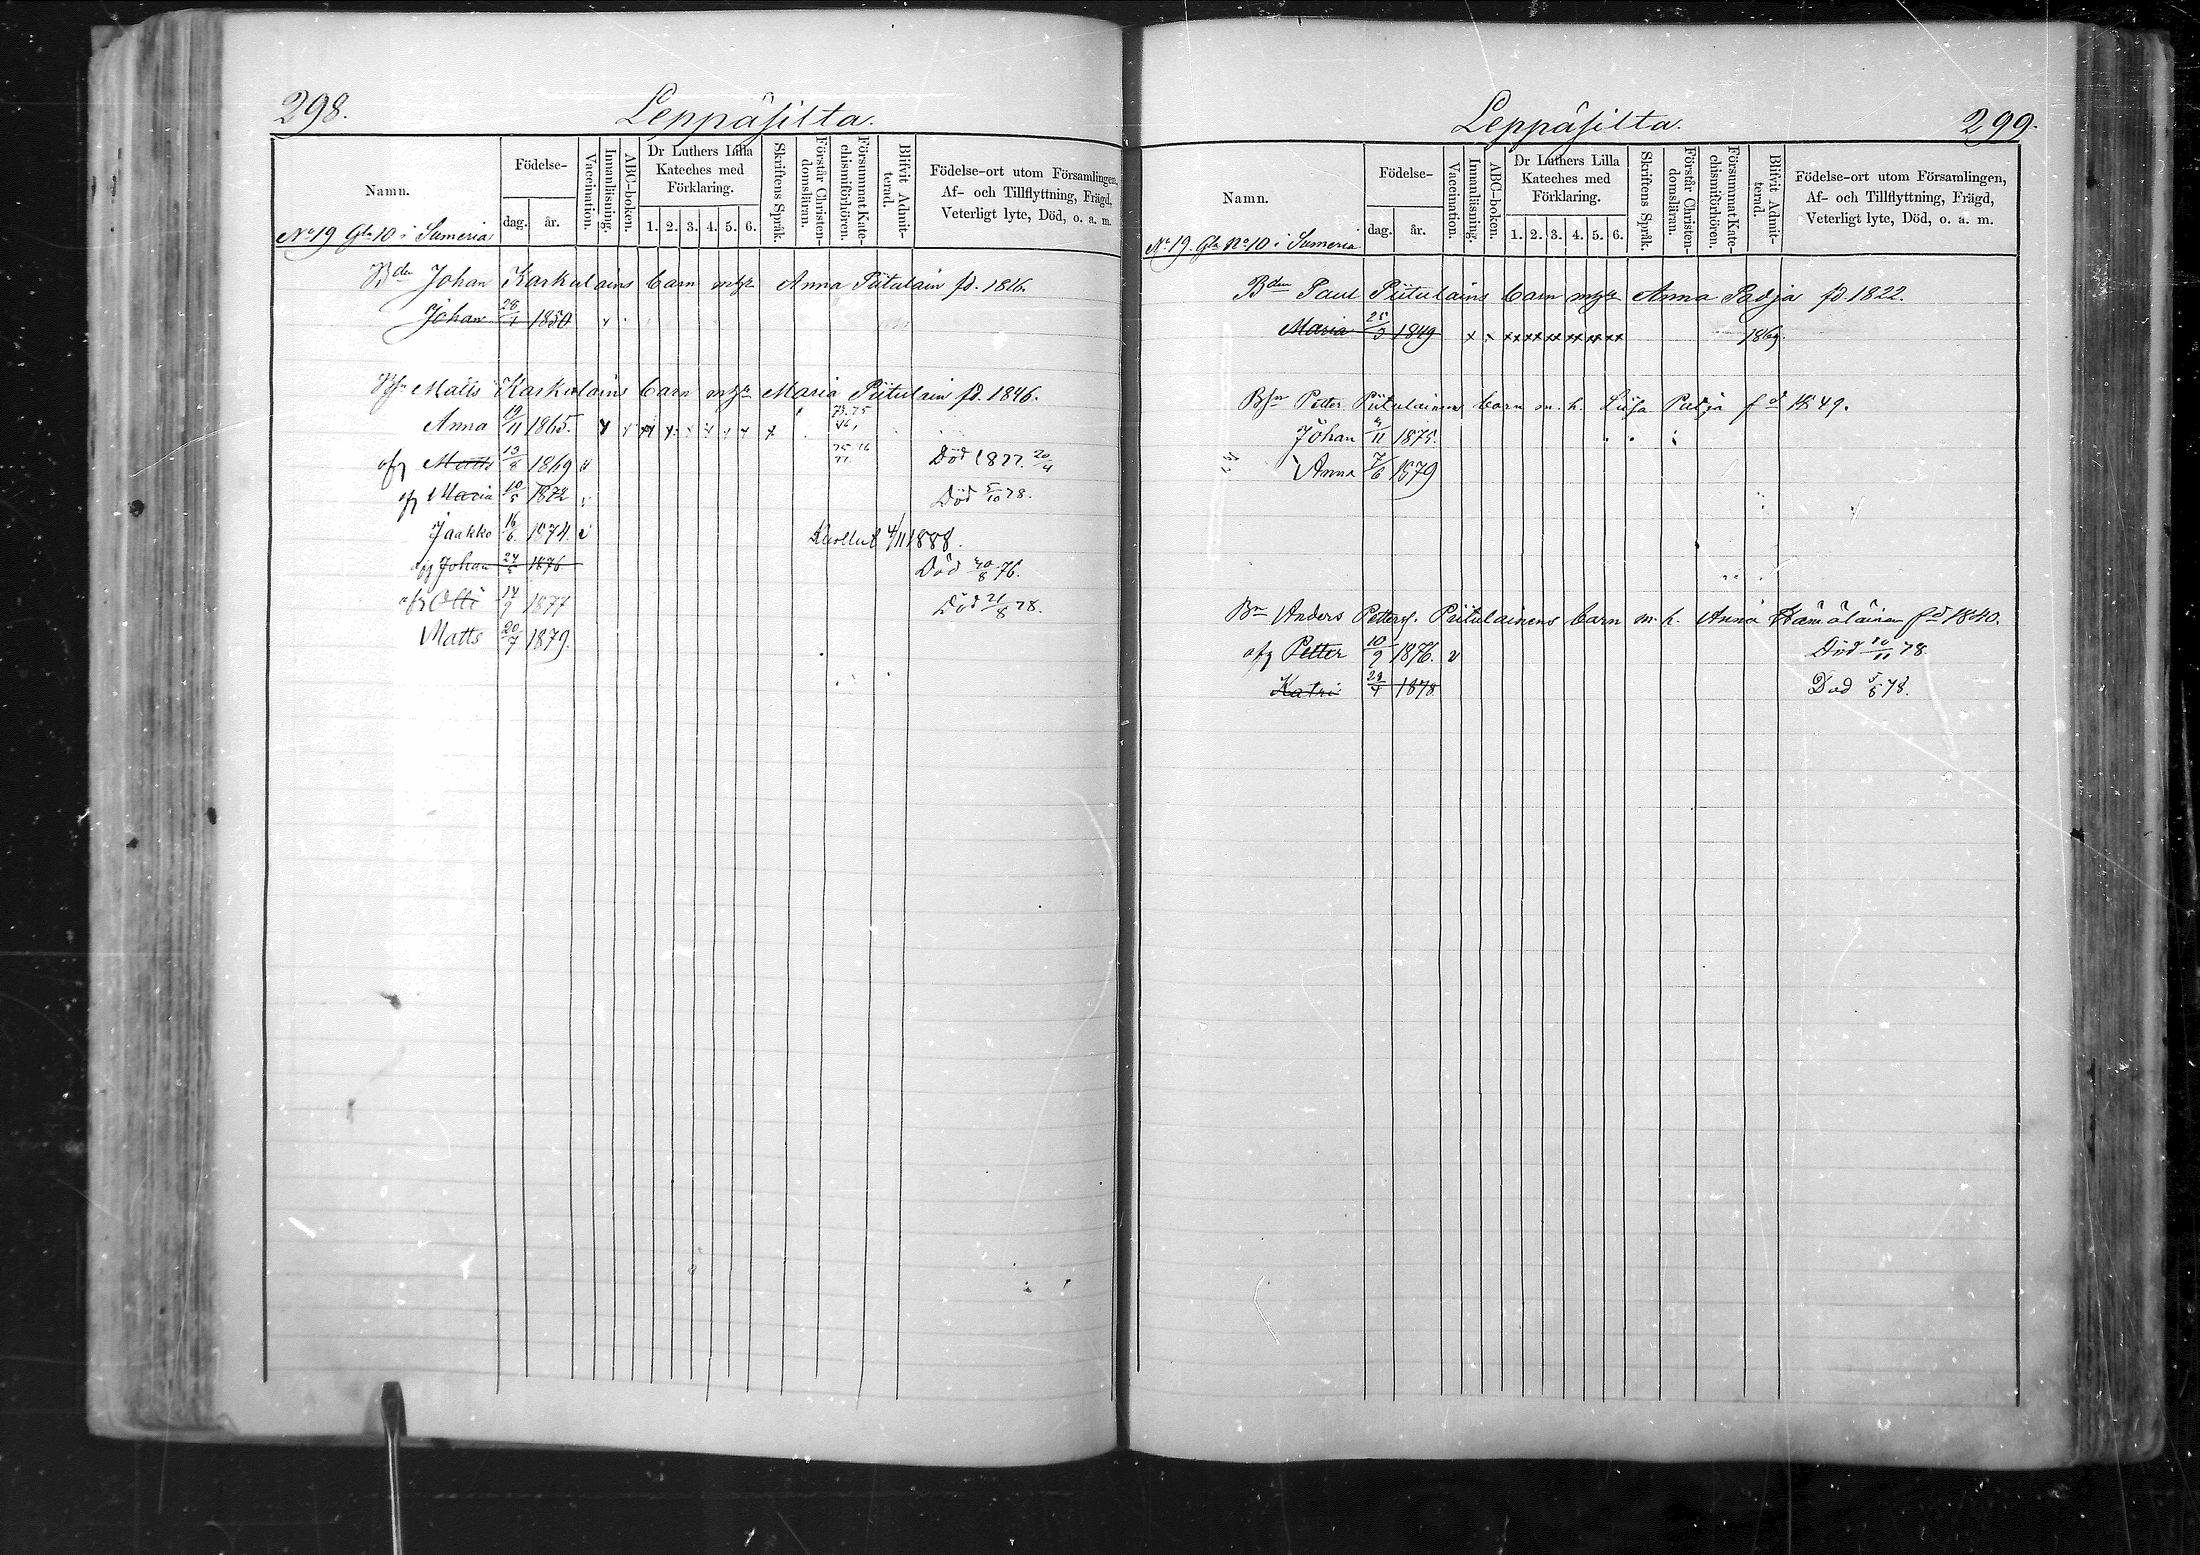 298.
Leppäsilta.
Namn.
Födelse-
dag.
år.
Vaccination.
Innanläsning.
ABC-boken.
Dr Luthers Lilla
Kateches med
Förklaring.
1. 2. 3. 4. 5. 6.
Skriftens Språk.
Förstår Christen-
domsläran.
Försummat Kate-
chismiförhören.
Blifvit Admit-
terad.
Födelse-ort utom Församlingen,
Af- och Tillflyttning, Frägd,
Veterligt lyte, Död, o. a. m.
No 19 Gla 10 i Sumeria
Bden Johan Karkulains barn Anna Piitulain fd. 1816.
Johan 28/1 1850
Matts Karkulains barn Maria Piitulain fd. 1846.
Anna 19/11 1865. 73. 75
Matts 13/8 1869 75 76 77 Död 1877. 20/4
Maria 10/5 1872 Död 5/10 78.
Jaakko 16/6. 1874. Kuollut 4/11 1888.
Johan 24/5 1876 Död 30/8 76.
Olli 14/9 1877 Död 21/8 78.
Matts 20/7 1879.
Leppäsilta.
299.
Namn.
Födelse-
dag.
år.
Vaccination.
Innanläsning.
ABC-boken.
Dr Luthers Lilla
Kateches med
Förklaring.
1. 2. 3. 4. 5. 6.
Skriftens Språk.
Förstår Christen-
domsläran.
Försummat Kate-
chismiförhören.
Blifvit Admit-
terad.
Födelse-ort utom Församlingen,
Af- och Tillflyttning, Frägd,
Veterligt lyte, Död, o. a. m.
No 19. Gla No 10 i Sumeria
Bden Paul Piitulains barn Anna Padja fd 1822.
Maria 25/3 1849 x x xx xx xx xx xx xx 1869.
Petter Piitulainens barn m. h. Liisa Padja fd 1849.
Johan 4/11 1875.
Anna 7/6 1879
Bn Anders Petters. Piitulainens barn m. h. Anna Hämäläinen fd 1840.
Petter 10/9 1876. Död 30/11 78.
Katri 29/4 1878 Död 5/6 78.